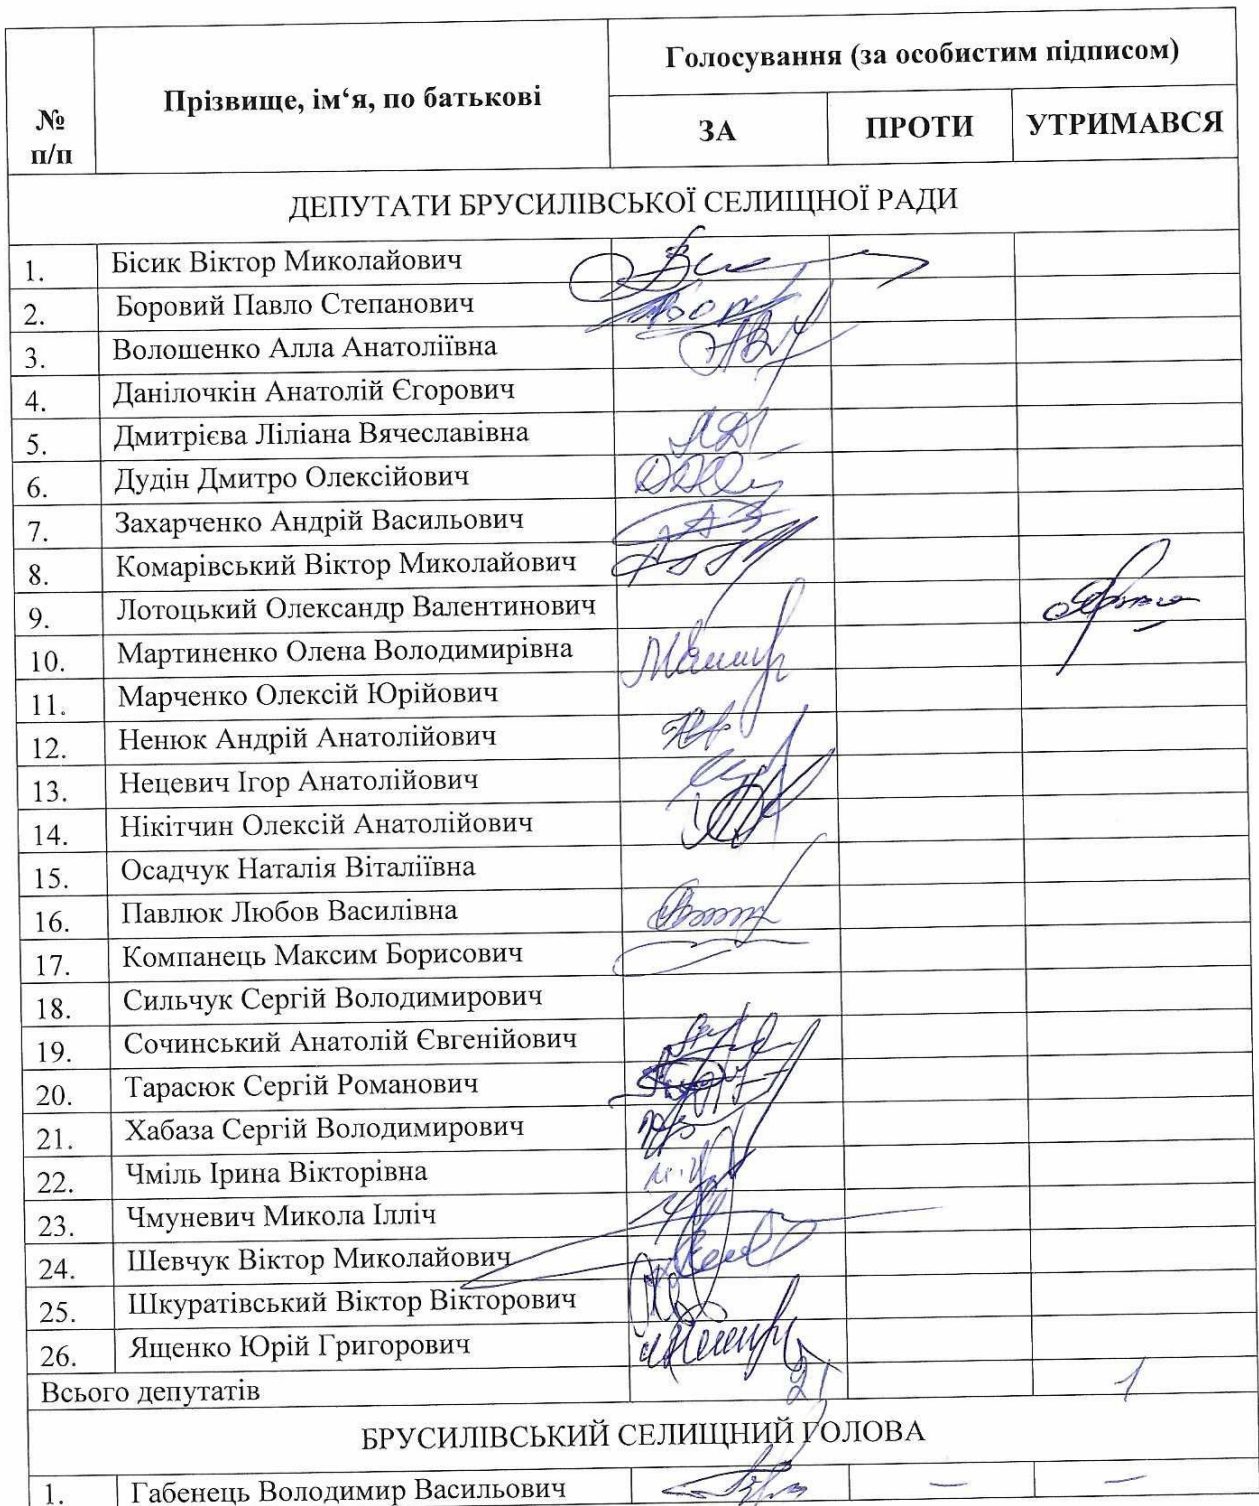 № п/п Прізвище, ім‘я, по батькові Голосування (за особистим підписом)
ЗА ПРОТИ УТРИМАВСЯ
ДЕПУТАТИ БРУСИЛІВСЬКОЇ СЕЛИЩНОЇ РАДИ
1. Бісик Віктор Миколайович
2. Боровий Павло Степанович
3. Волошенко Алла Анатоліївна
4. Данілочкін Анатолій Єгорович
5. Дмитрієва Ліліана Вячеславівна
6. Дудін Дмитро Олексійович
7. Захарченко Андрій Васильович
8. Комарівський Віктор Миколайович
9. Лотоцький Олександр Валентинович
10. Мартиненко Олена Володимирівна
11. Марченко Олексій Юрійович
12. Ненюк Андрій Анатолійович
13. Нецевич Ігор Анатолійович
14. Нікітчин Олексій Анатолійович
15. Осадчук Наталія Віталіївна
16. Павлюк Любов Василівна
17. Компанець Максим Борисович
18. Сильчук Сергій Володимирович
19. Сочинський Анатолій Євгенійович
20. Тарасюк Сергій Романович
21. Хабаза Сергій Володимирович
22. Чміль Ірина Вікторівна
23. Чмуневич Микола Ілліч
24. Шевчук Віктор Миколайович
25. Шкуратівський Віктор Вікторович
26. Ященко Юрій Григорович
Всього депутатів 21 1
БРУСИЛІВСЬКИЙ СЕЛИЩНИЙ ГОЛОВА
1. Габенець Володимир Васильович – –